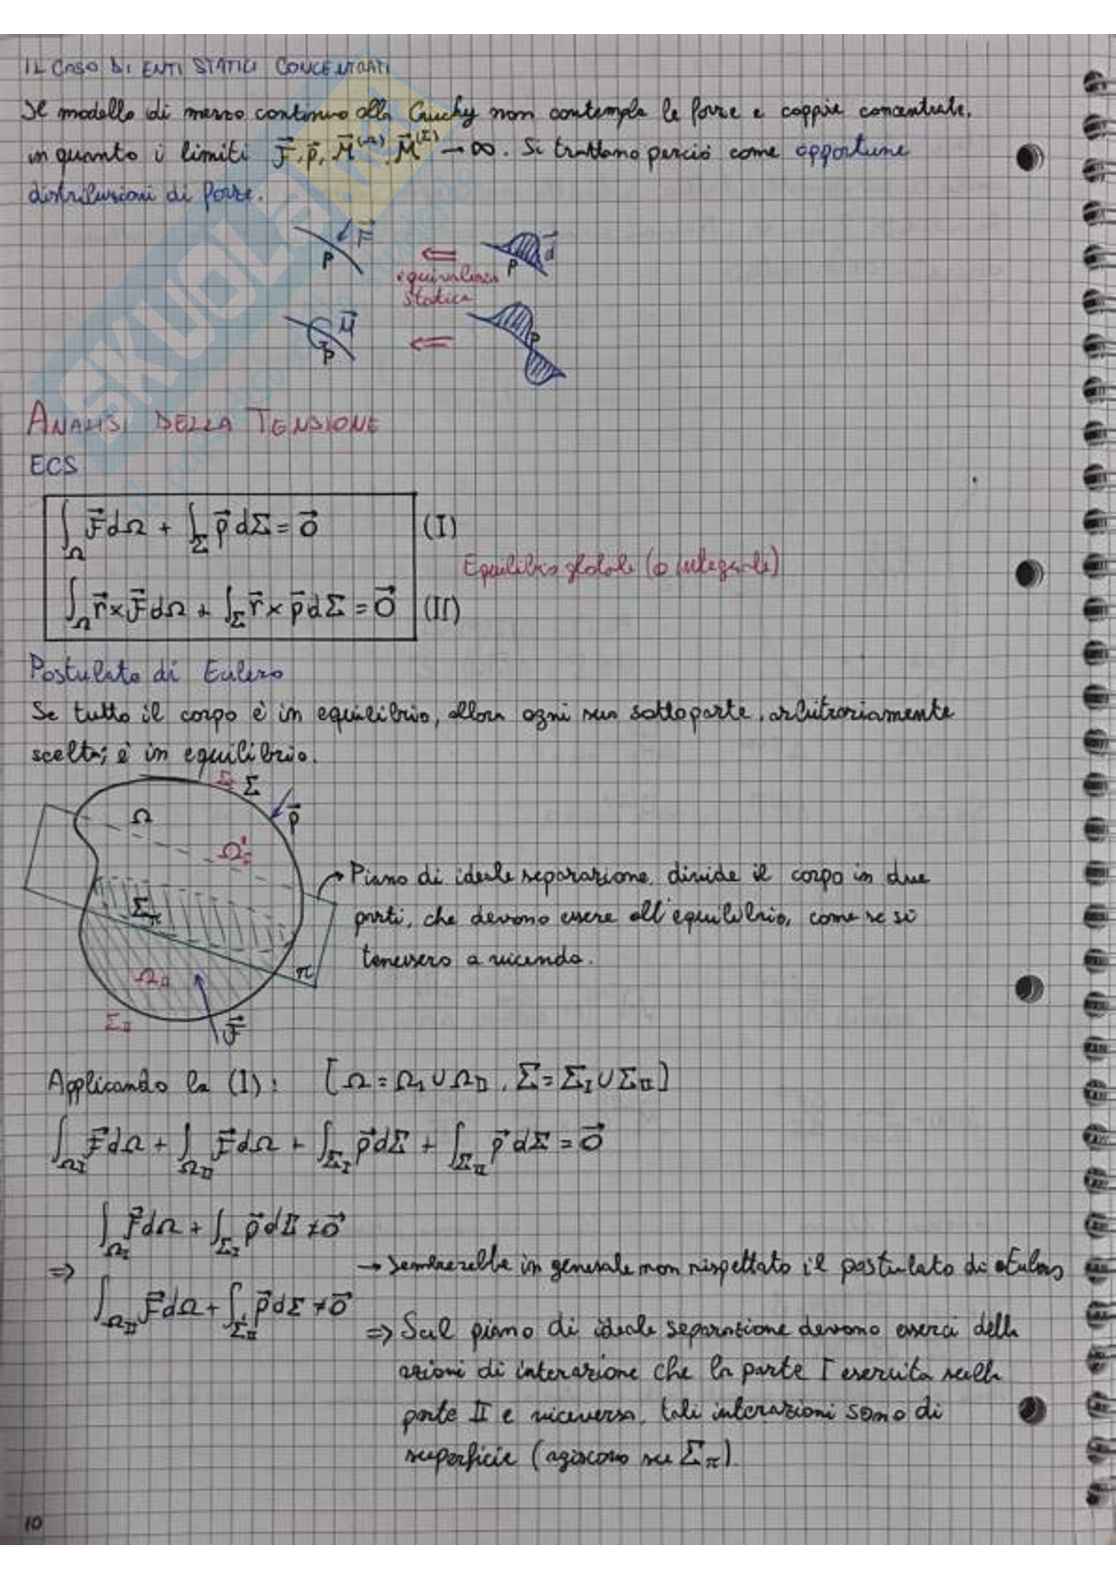 IL CASO DI ENTI STATICI CONCENTRATI
Il modello di mezzo continuo alla Cauchy non contempla le forze e coppie concentrate,
in quanto i limiti F⃗, p⃗, M⃗^(Ω), M⃗^(Σ) → ∞. Si trattano perciò come opportune
distribuzioni di forze.
P F⃗ ⇐ P d⃗
equivalenza
statica
M⃗ P ⇐ P
ANALISI DELLA TENSIONE
ECS
∫_Ω F⃗ dΩ + ∫_Σ p⃗ dΣ = 0⃗ (I)
Equilibrio globale (o integrale)
∫_Ω r⃗ × F⃗ dΩ + ∫_Σ r⃗ × p⃗ dΣ = 0⃗ (II)
Postulato di Eulero
Se tutto il corpo è in equilibrio, allora ogni sua sottoparte, arbitrariamente
scelta, è in equilibrio.
Σ_I Σ
Ω p⃗
Ω_I
Piano di ideale separazione, divide il corpo in due
Σ_π parti, che devono essere all'equilibrio, come se si
tenessero a vicenda.
Ω_II π
Σ_II F⃗
Applicando la (I): [Ω = Ω_I ∪ Ω_II, Σ = Σ_I ∪ Σ_II]
∫_Ω_I F⃗ dΩ + ∫_Ω_II F⃗ dΩ + ∫_Σ_I p⃗ dΣ + ∫_Σ_II p⃗ dΣ = 0⃗
∫_Ω_I F⃗ dΩ + ∫_Σ_I p⃗ dΣ ≠ 0⃗
⇒ → Sembrerebbe in generale non rispettato il postulato di Eulero
∫_Ω_II F⃗ dΩ + ∫_Σ_II p⃗ dΣ ≠ 0⃗
⇒ Sul piano di ideale separazione devono esserci delle
azioni di interazione che la parte I esercita sulla
parte II e viceversa, tali interazioni sono di
superficie (agiscono su Σ_π).
10
SKUOLA